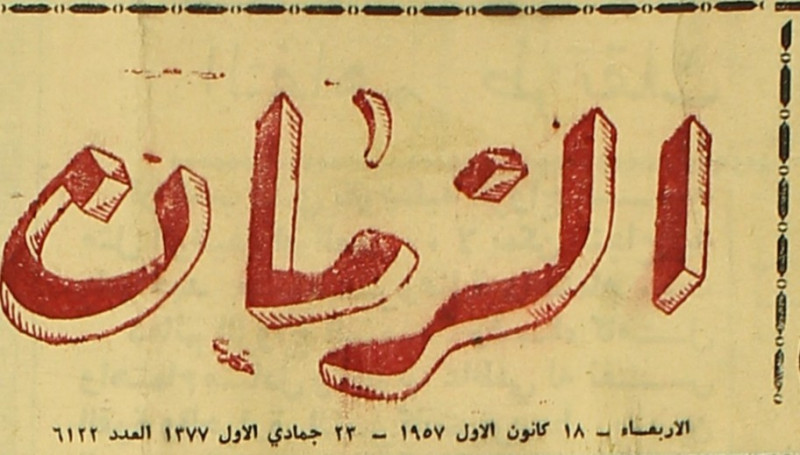 الزمان
الاربعــاء – ١٨ كانون الاول ١٩٥٧ – ٢٣ جمادي الاول ١٣٧٧ العدد ٦١٢٢